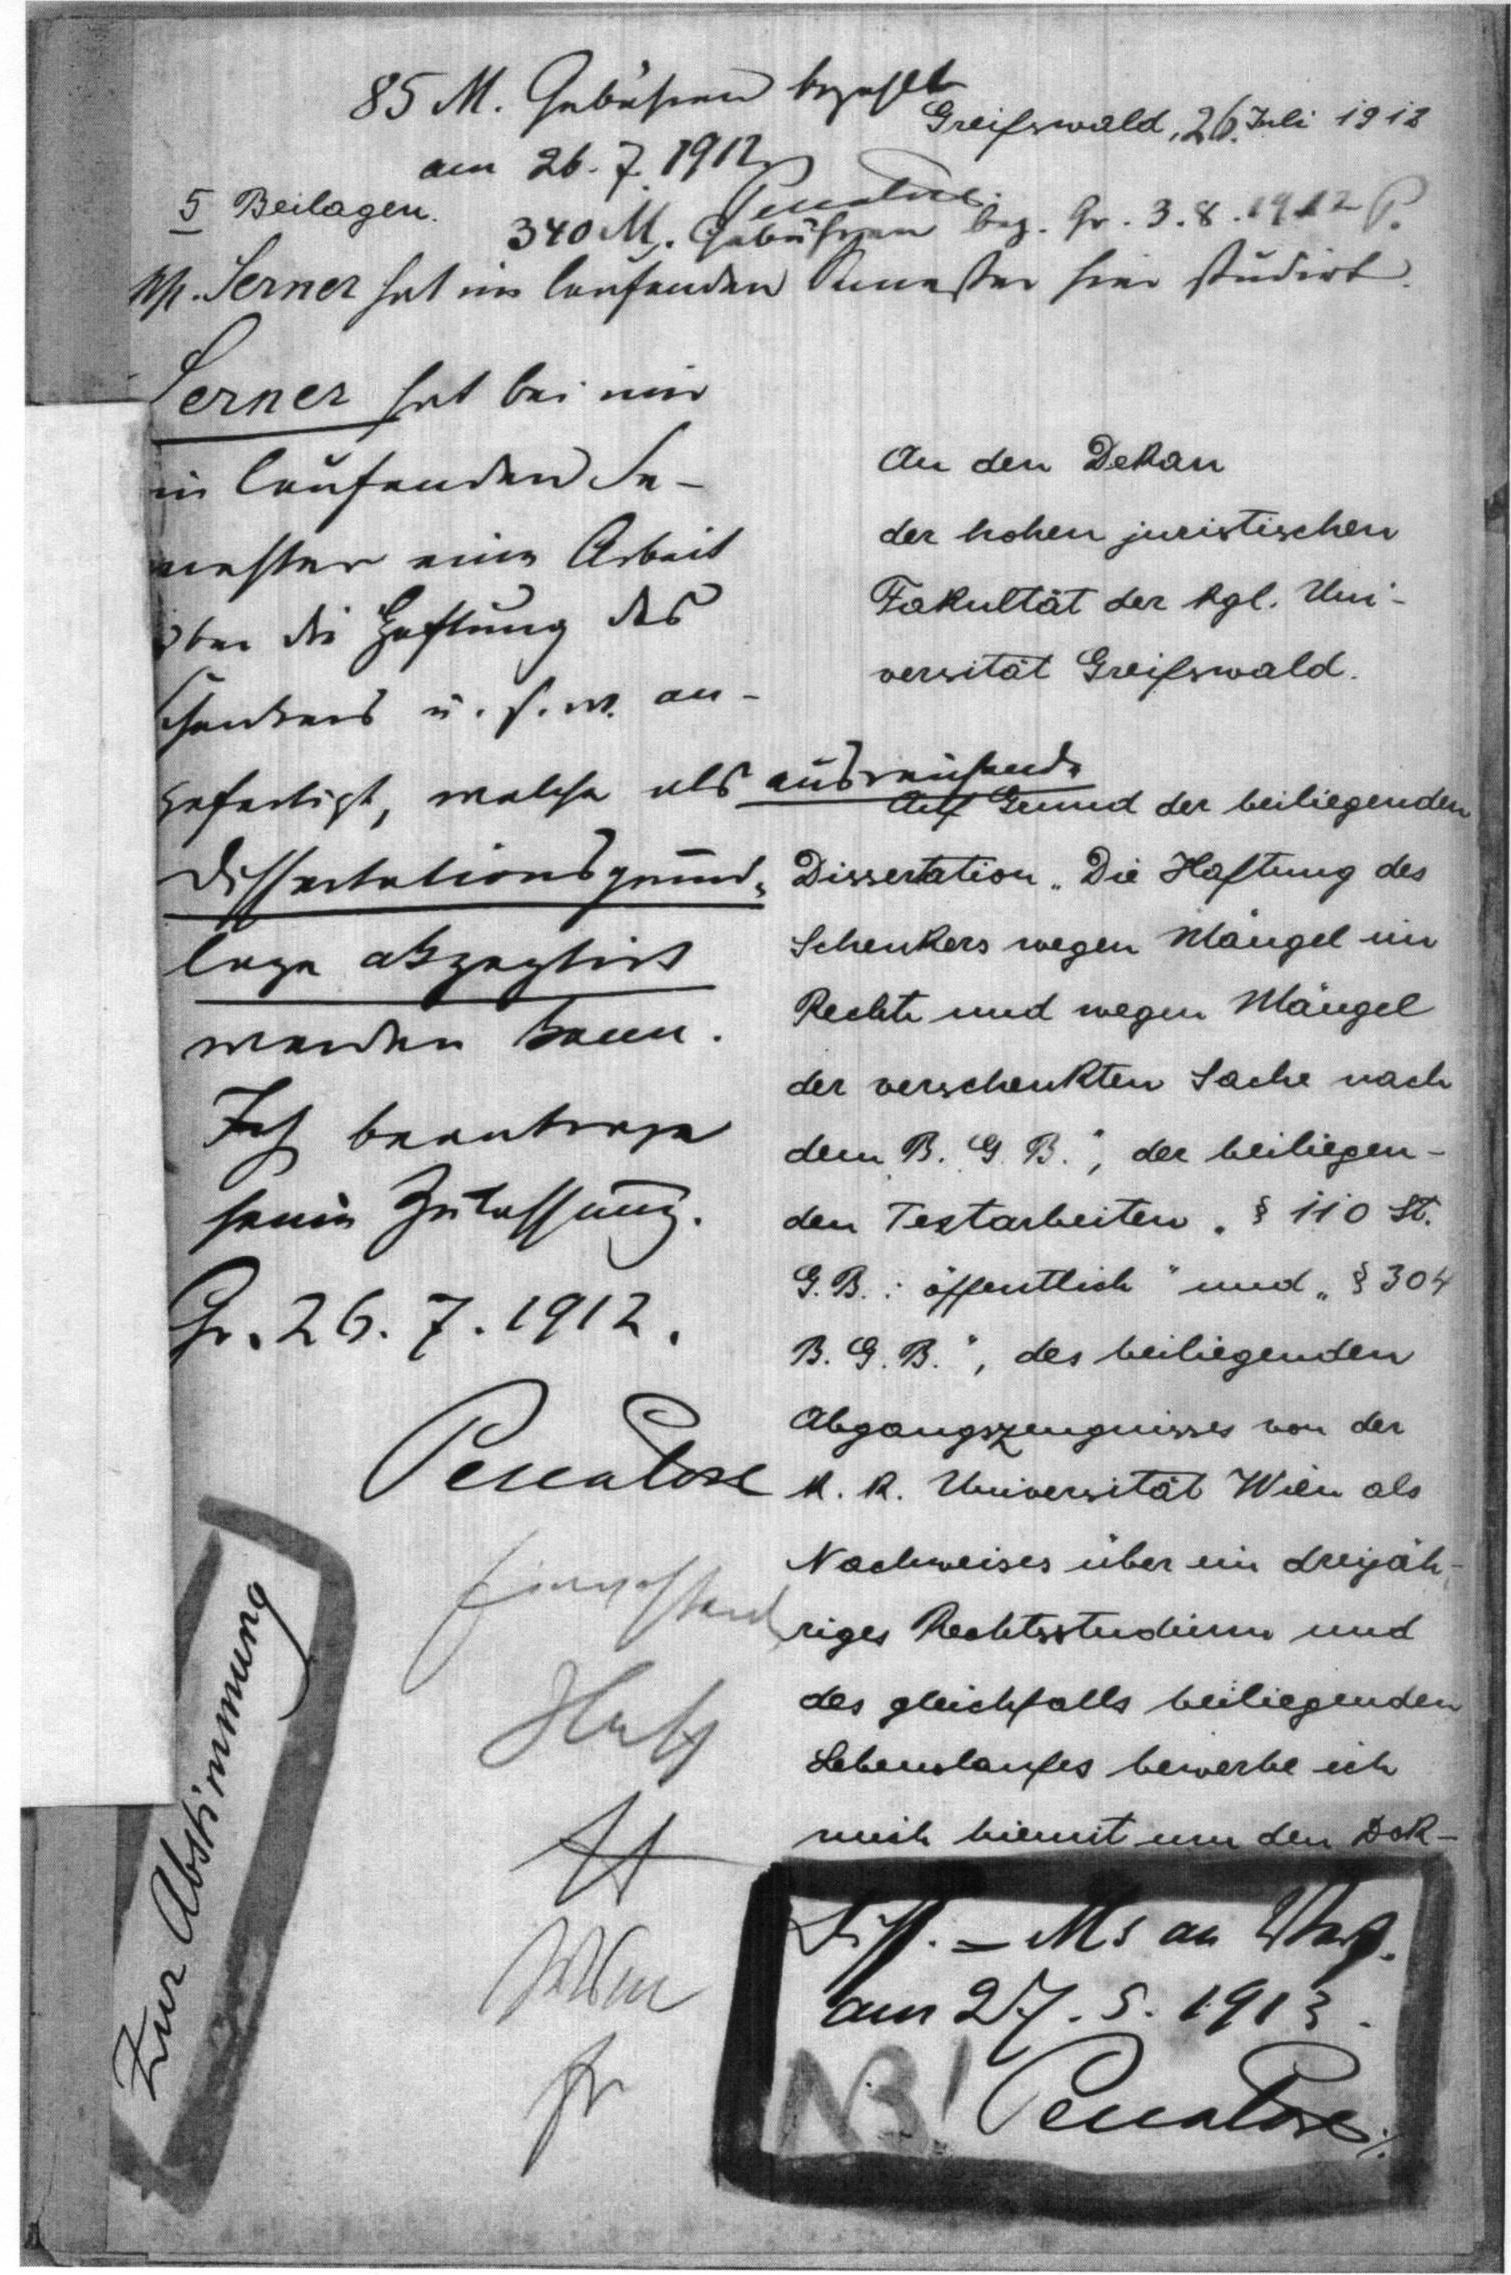 85 M. Gebühren bezahlt
am 26. 7. 1912
Greifswald, 26. Juli 1912
5 Beilagen.
340 M. Gebühren bez. Gr. 3. 8. 1912 P.
Serner hat im laufenden Semester hier studirt.
Serner hat bei mir
im laufenden Se-
mester eine Arbeit
über die Haftung des
Schenkers u. s. w. an-
gefertigt, welche als ausreichende
Dissertationsgrund-
lage akzeptirt
werden kann.
Ich beantrage
seine Zulassung.
Gr. 26. 7. 1912.
An den Dekan
der hohen juristischen
Fakultät der kgl. Uni-
versität Greifswald.
Auf Grund der beiliegenden
Dissertation „Die Haftung des
Schenkers wegen Mängel im
Rechte und wegen Mängel
der verschenkten Sache nach
dem B. G. B.“, der beiliegen-
den Textarbeiten „§ 110 St.
G. B. : öffentlich“ und „§ 304
B. G. B.“, des beiliegenden
Abgangszeugnisses von der
k. k. Universität Wien als
Nachweises über ein dreijäh-
riges Rechtsstudium und
des gleichfalls beiliegenden
Lebenslaufes bewerbe ich
mich hiemit um den Dok-
Zur Abstimmung
Diss. - Ms an
am 27. 5. 1913.
NB!